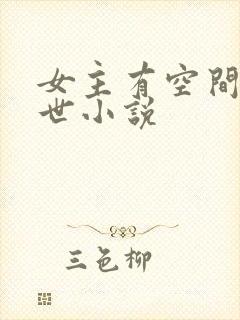 女主有空間
世小説
三色柳